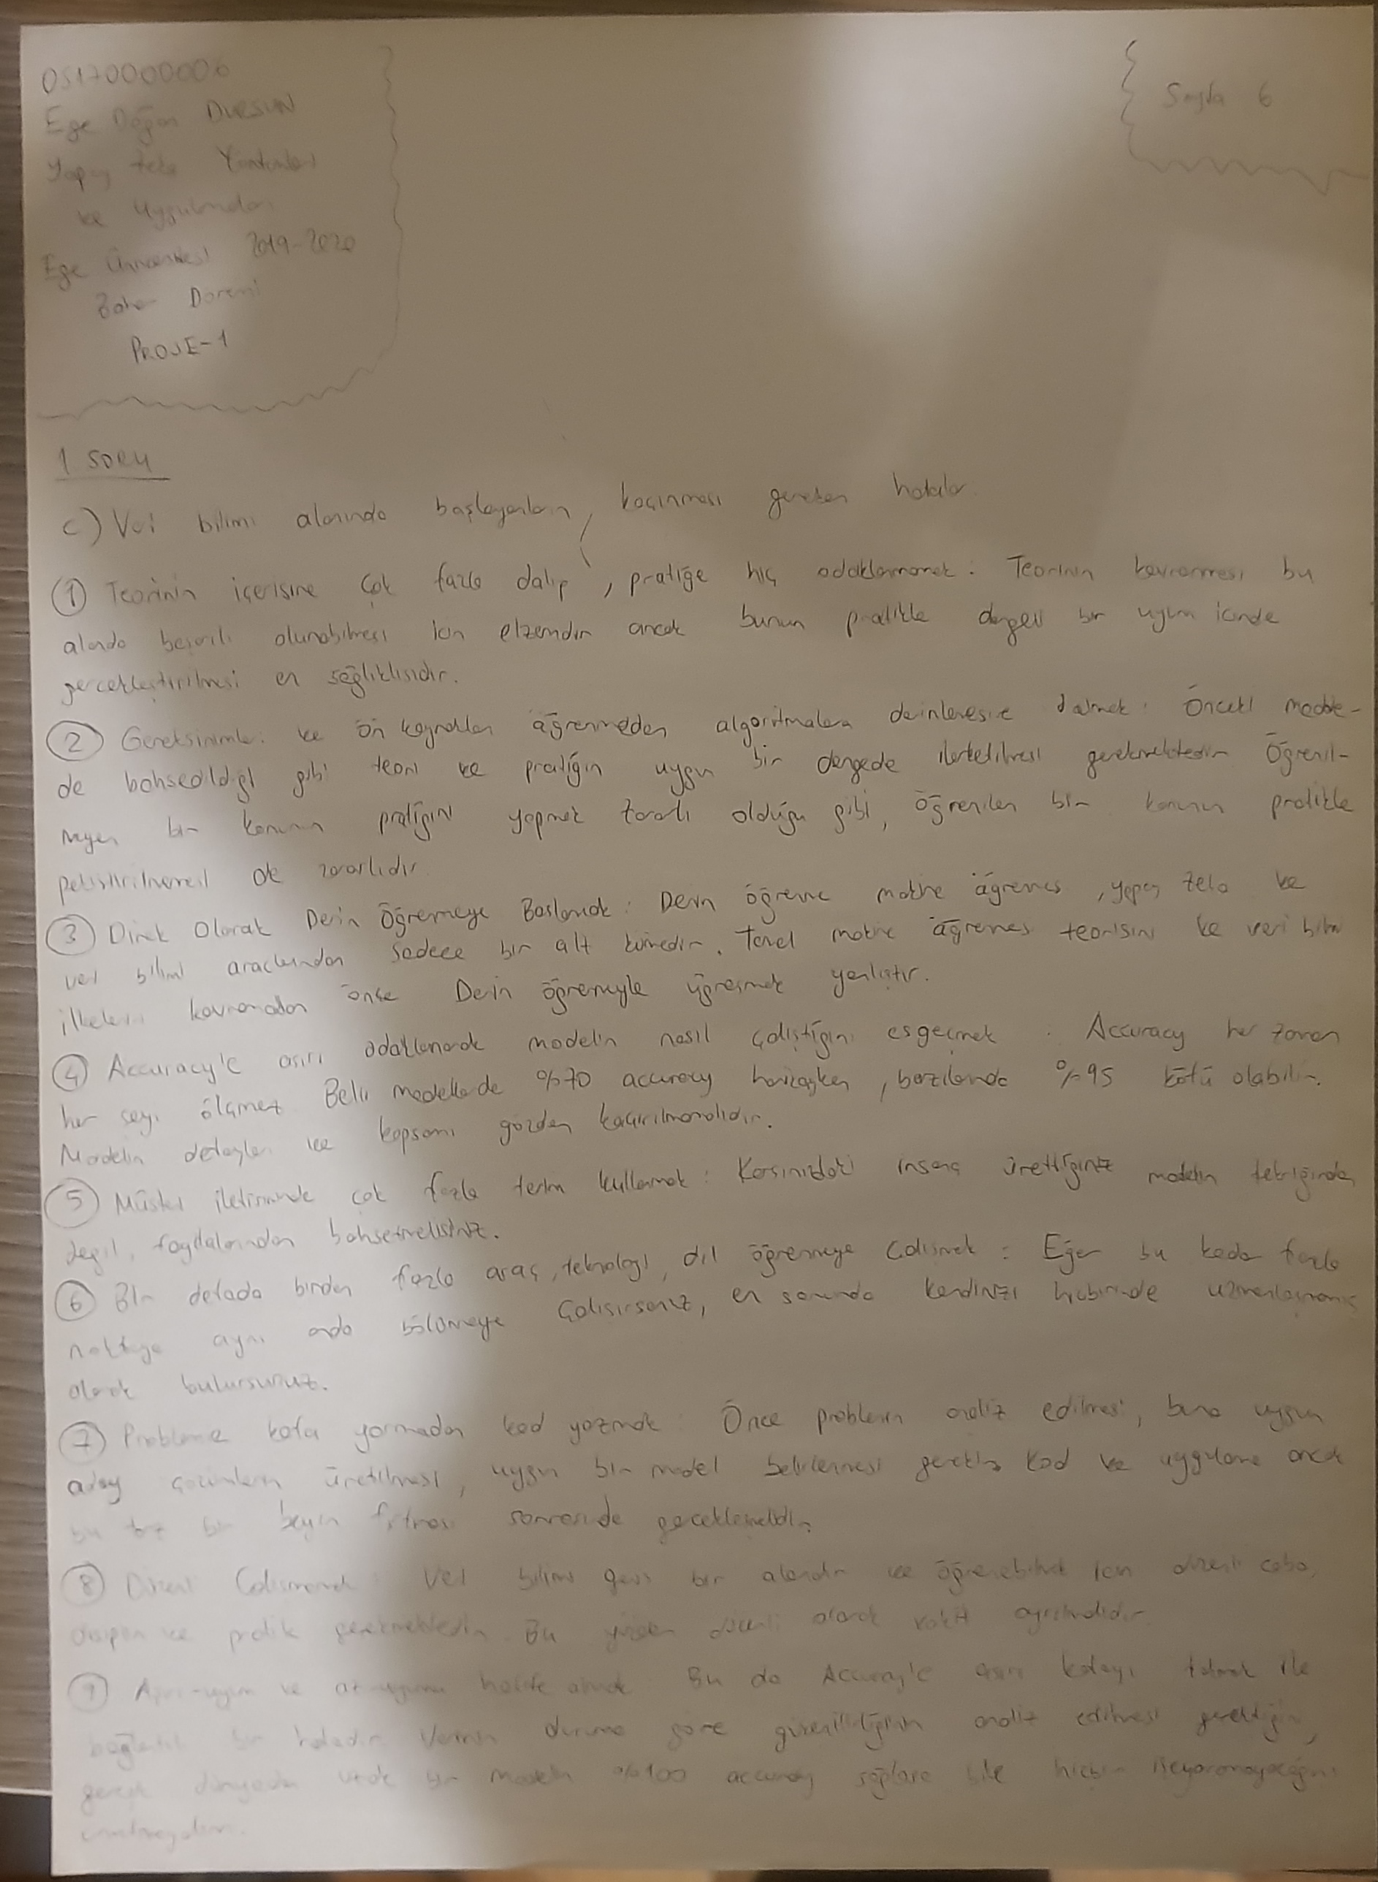 05170000006
Ege Doğan DURSUN
Yapay Zeka Yöntemleri
ve Uygulamaları
Ege Üniversitesi 2019-2020
Bahar Dönemi
PROJE-1
Sayfa 6
1 SORU
C) Veri bilimi alanında başlayanların, kaçınması gereken hatalar
① Teorinin içerisine çok fazla dalıp, pratiğe hiç odaklanmamak: Teorinin kavranması bu
alanda başarılı olunabilmesi için elzemdir ancak bunun pratikle dengeli bir uyum içinde
gerçekleştirilmesi en sağlıklısıdır.
② Gereksinimleri ve ön kaynakları öğrenmeden algoritmalara derinlemesine dalmak: Önceki madde-
de bahsedildiği gibi teori ve pratiğin uygun bir dengede ilerletilmesi gerekmektedir. Öğrenil-
meyen bir konunun pratiğini yapmak zararlı olduğu gibi, öğrenilen bir konunun pratikle
pekiştirilmemesi de zararlıdır.
③ Direk Olarak Derin Öğrenmeye Başlamak: Derin öğrenme makine öğrenmesi, yapay zeka ve
veri bilimi araçlarından sadece bir alt kümedir. Temel makine öğrenmesi teorisini ve veri bilimi
ilkelerini kavramadan önce Derin öğrenmeyle uğraşmak yanlıştır.
④ Accuracy'e aşırı odaklanarak modelin nasıl çalıştığını esgeçmek. Accuracy her zaman
her şeyi ölçmez. Belli modellerde %70 accuracy harikayken, bazılarında %95 kötü olabilir.
Modelin detayları ve kapsamı gözden kaçırılmamalıdır.
⑤ Müşteri iletişiminde çok fazla terim kullanmak: Karşınızdaki insana ürettiğiniz modelin tekniğinden
değil, faydalarından bahsetmelisiniz.
⑥ Bir defada birden fazla araç, teknoloji, dil öğrenmeye çalışmak: Eğer bu kadar fazla
noktaya aynı anda bölünmeye çalışırsanız, en sonunda kendinizi hiçbirinde uzmanlaşmamış
olarak bulursunuz.
⑦ Probleme kafa yormadan kod yazmak: Önce problemin analiz edilmesi, buna uygun
aday çözümlerin üretilmesi, uygun bir model belirlenmesi gerekir. Kod ve uygulama ancak
bu tarz bir beyin fırtınası sonrasında gerçeklenmelidir.
⑧ Düzenli Çalışmamak: Veri bilimi geniş bir alandır ve öğrenebilmek için düzenli çaba,
ve pratik gerekmektedir. Bu yüzden düzenli olarak vakit ayrılmalıdır.
⑨ Aşırı-uyum ve az-uyumu hafife almak: Bu da Accuracy'e aşırı kafayı takmak ile
bağlantılı bir hatadır. Verinin duruma göre güvenilirliğinin analiz edilmesi gerektiğini,
gerçek dünyadan uzak bir modelin %100 accuracy sağlasa bile hiçbir işe yaramayacağını
unutmayalım.